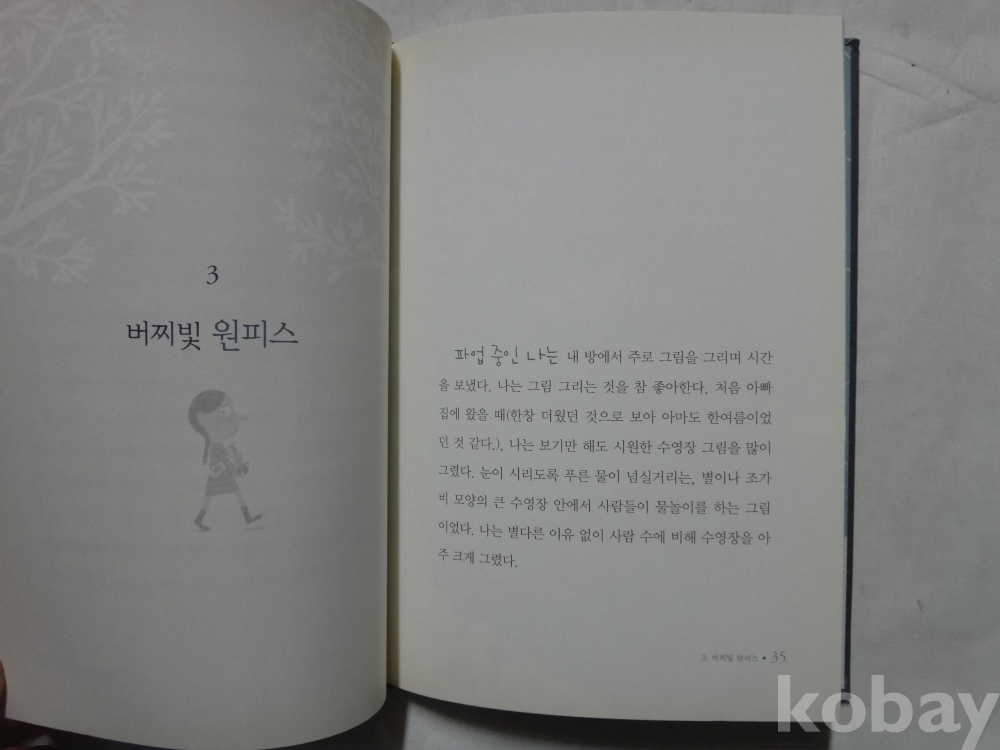 3
버찌빛 원피스
파업 중인 나는 내 방에서 주로 그림을 그리며 시간
을 보냈다. 나는 그림 그리는 것을 참 좋아한다. 처음 아빠
집에 왔을 때(한창 더웠던 것으로 보아 아마도 한여름이었
던 것 같다.), 나는 보기만 해도 시원한 수영장 그림을 많이
그렸다. 눈이 시리도록 푸른 물이 넘실거리는, 별이나 조가
비 모양의 큰 수영장 안에서 사람들이 물놀이를 하는 그림
이었다. 나는 별다른 이유 없이 사람 수에 비해 수영장을 아
주 크게 그렸다.
3 버찌빛 원피스 • 35
kobay